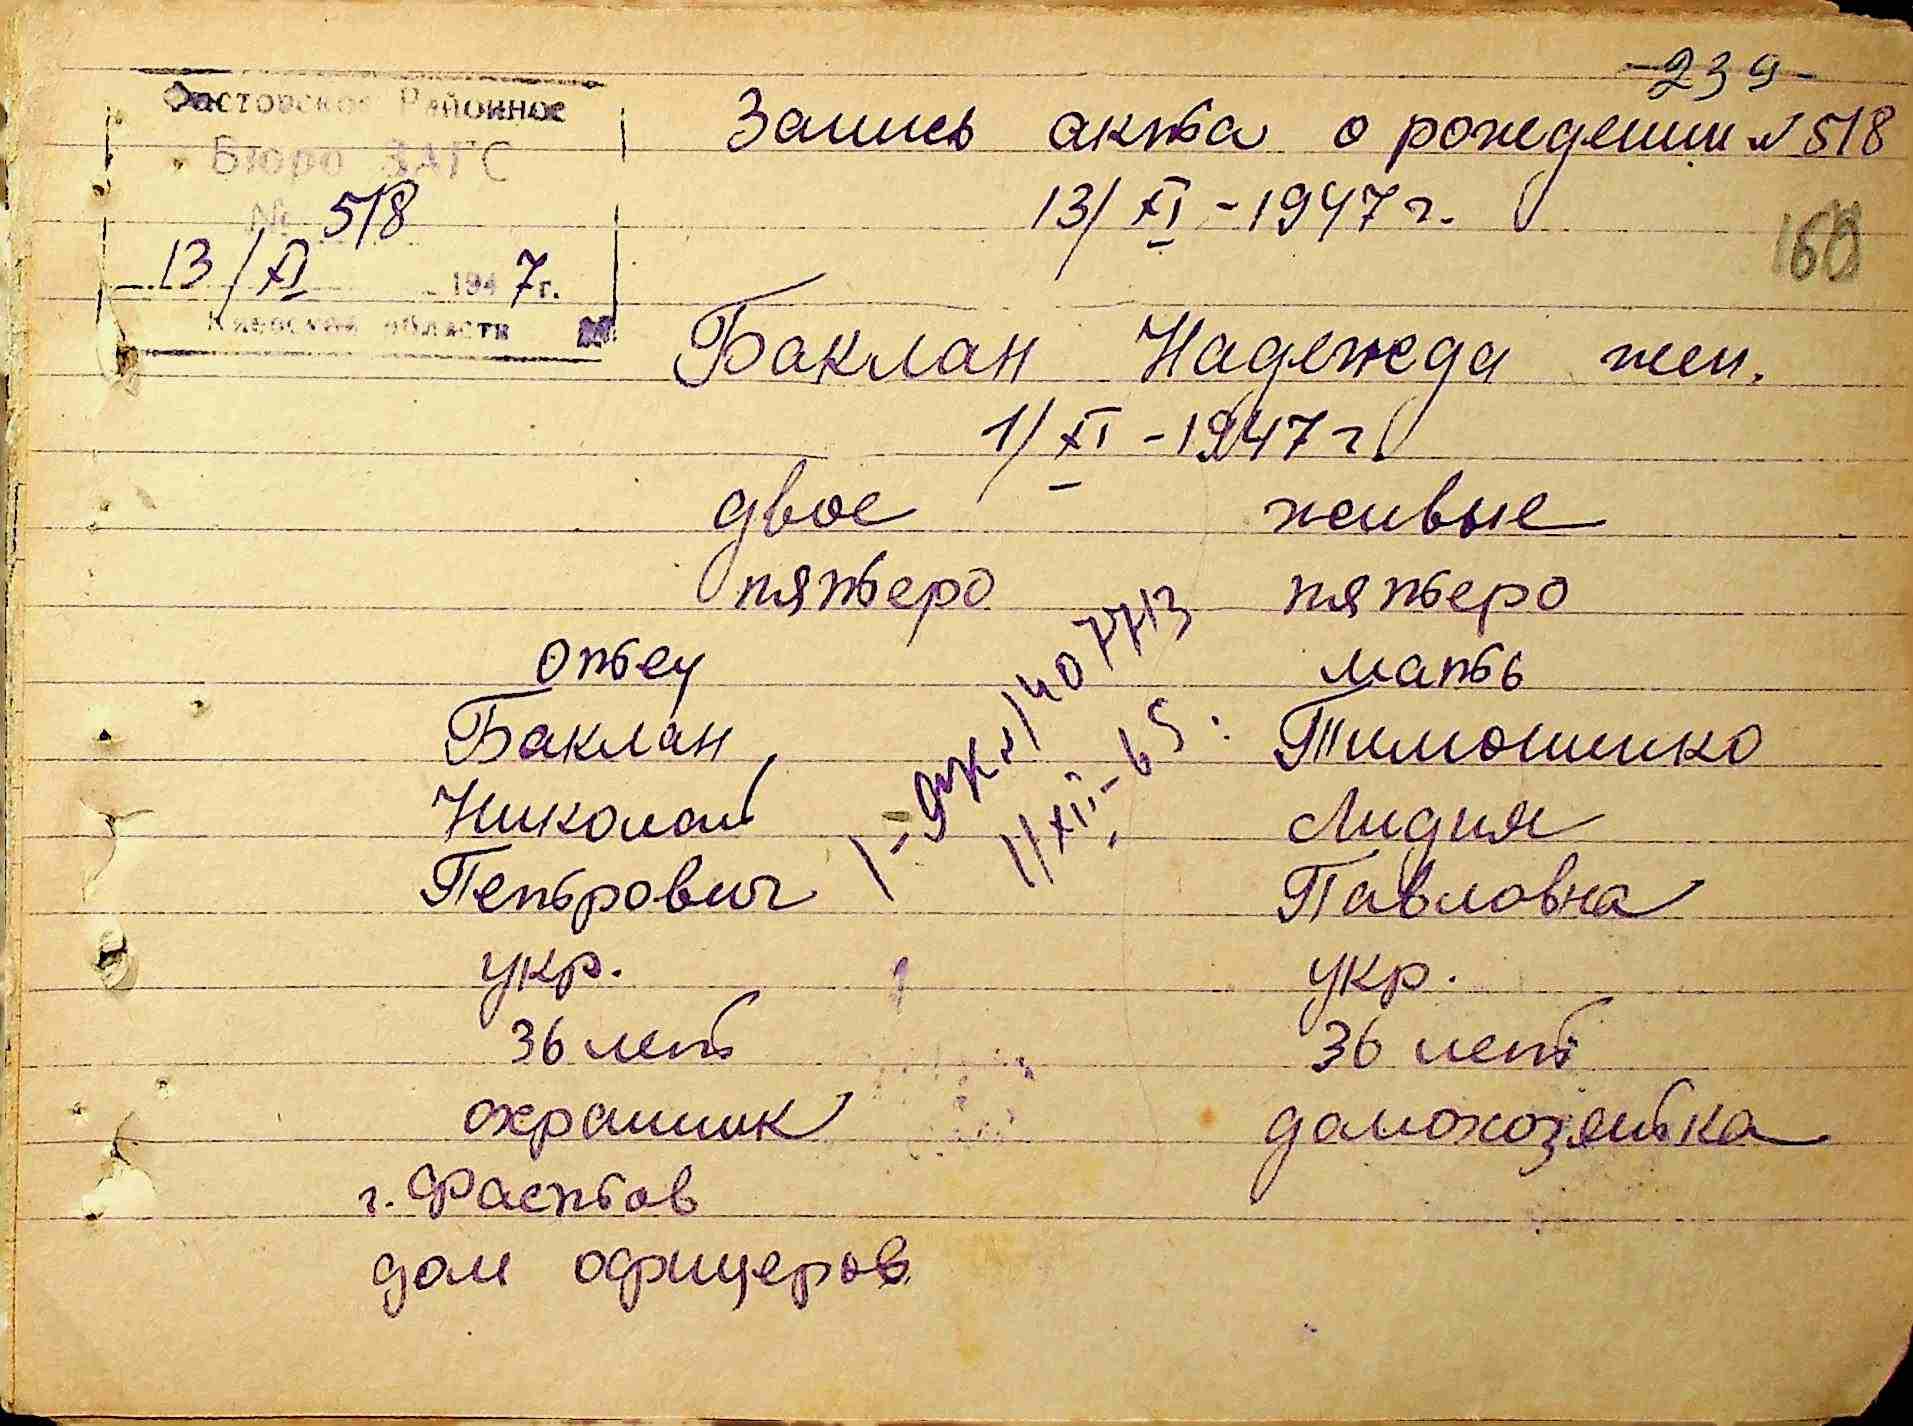 -239-
Фастовское Районное
Бюро ЗАГС
№ 518
13/XI 1947г.
Киевской области
Запись акта о рождении №518
13/XI-1947г.
160
Баклан Надежда жен.
1/XI-1947г.
двое живые
пятеро пятеро
отец мать
Баклан Тимошенко
Николай Лидия
Петрович Павловна
укр. укр.
36 лет 36 лет
охранник домохозяйка
г. Фастов
дом офицеров
407713
11/XII-65